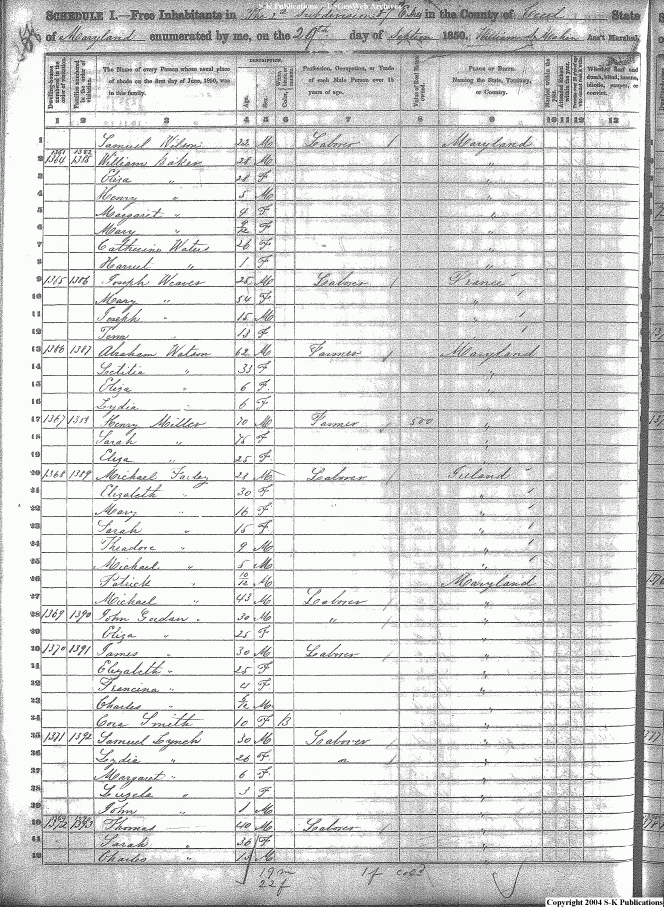 S-K Publications - USGenWeb Archives
SCHEDULE I.—Free Inhabitants in The 3d Subdivision of in the County of Cecil State
of Maryland enumerated by me, on the 20th day of Septem 1850. Ass't Marshal.
Dwelling-houses numbered in the order of visitation.
Families numbered in the order of visitation.
The Name of every Person whose usual place of abode on the first day of June, 1850, was in this family.
DESCRIPTION.
Age.
Sex.
Color,
Profession, Occupation, or Trade of each Male Person over 15 years of age.
Value of Real Estate owned.
PLACE OF BIRTH. Naming the State, Territory, or Country.
Married within the year.
Whether deaf and dumb, blind, insane, idiotic, pauper, or convict.
1 2 3 4 5 6 7 8 9 10 11 12 13
1 Samuel Wilson 22 M Laborer / Maryland
2 1364 1385 William Baker 28 M "
3 Eliza " 28 F "
4 Henry " 5 M "
5 Margaret " 4 F "
6 Mary " F "
7 Catherine Waters 26 F "
8 Harriet " 1 F "
9 1365 1386 Joseph Weaver 25 M Laborer / France /
10 Mary " 54 F " /
11 Joseph " 15 M " /
12 13 F " /
13 1366 1387 Abraham Watson 62 M Farmer / Maryland
14 " 33 F "
15 Eliza " 6 F "
16 Lydia " 6 F "
17 1367 1388 Henry Miller 70 M Farmer / 500 "
18 Sarah " 75 F "
19 Eliza " 25 F "
20 1368 1389 Michael 28 M Laborer / Ireland /
21 Elizabeth " 30 F " /
22 Mary " 16 F " /
23 Sarah " 15 F " /
24 Theadore " 9 M " /
25 Michael " 5 M " /
26 Patrick " 10/12 M Maryland
27 Michael " 43 M Laborer / "
28 1369 1390 John " 30 M " / "
29 Eliza " 25 F "
30 1370 1391 James " 30 M Laborer / "
31 Elizabeth " 25 F "
32 Francina " 4 F "
33 Charles " M "
34 Cora Smith 10 F B "
35 1371 1392 Samuel Lynch 30 M Laborer / "
36 Lydia " 26 F " / "
37 Margaret " 6 F "
38 " 3 F "
39 John " 1 M "
40 1372 1393 Thomas 40 M Laborer / "
41 Sarah " 36 F "
42 Charles " 13 M "
19 m
22 f 1 f cold
Copyright 2004 S-K Publications